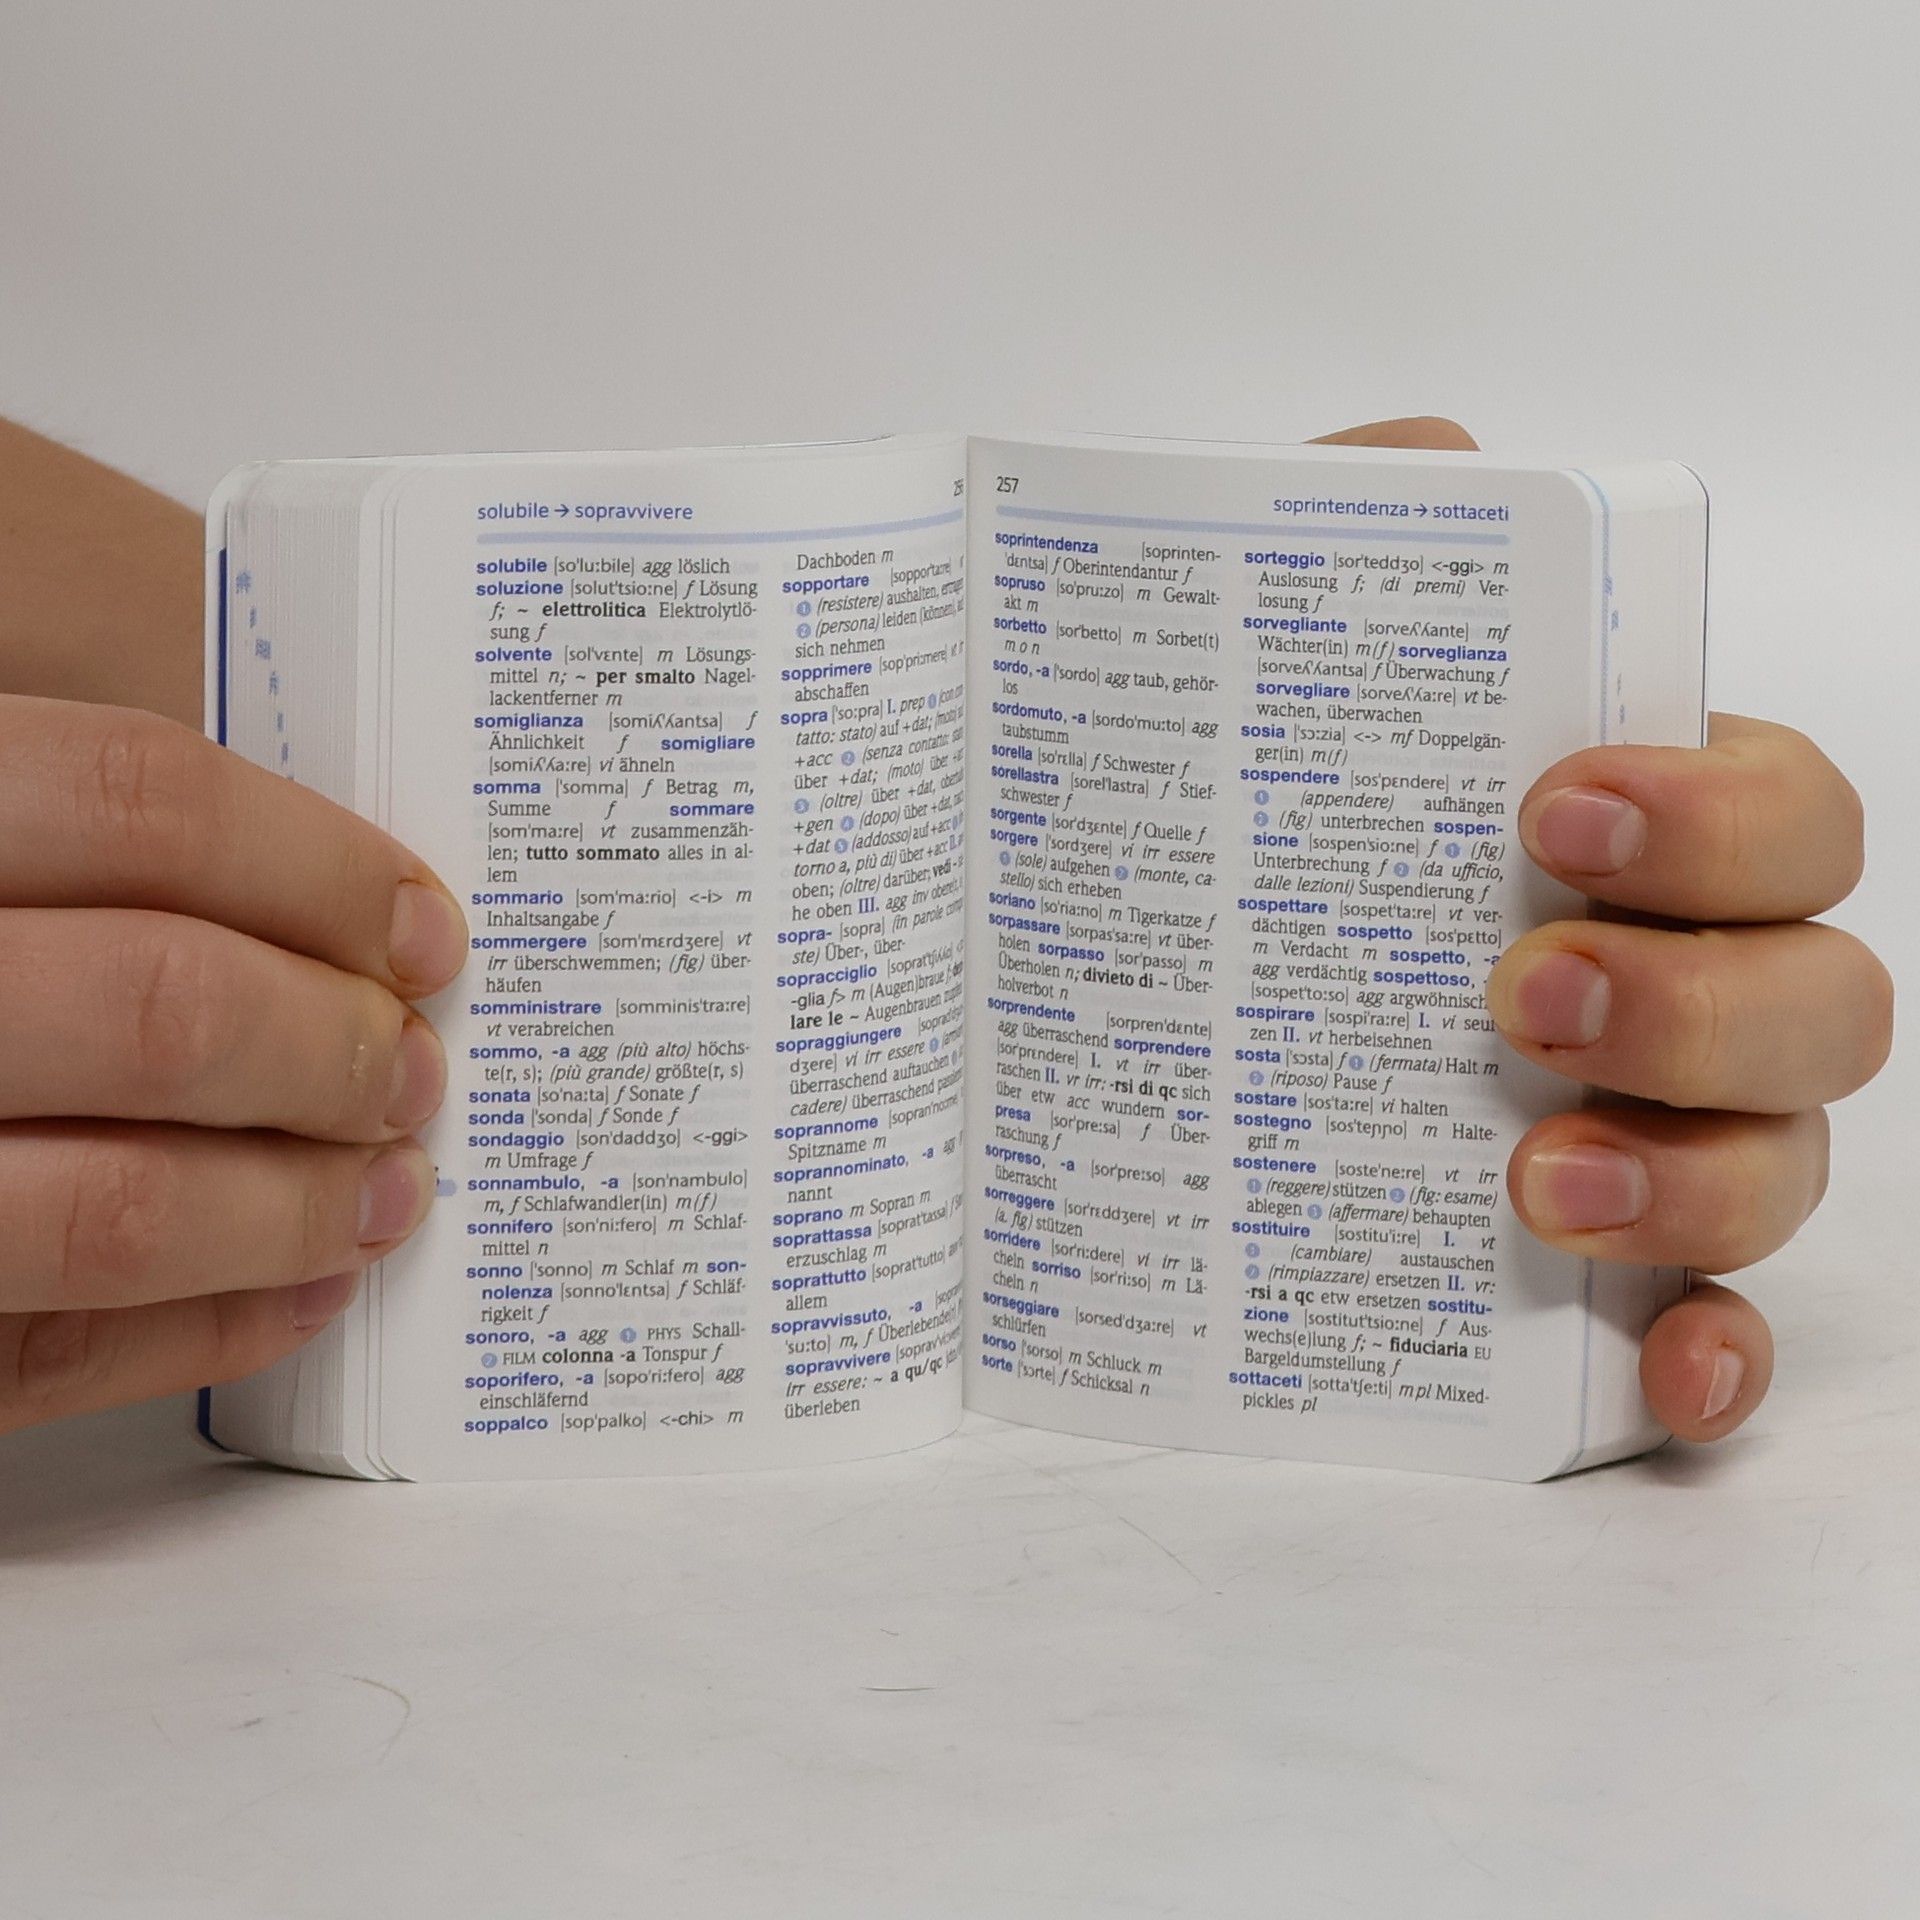 solubile → sopravvivere
solubile [so'lu:bile] agg löslich
soluzione [solut'tsio:ne] f Lösung
f; ~ elettrolitica Elektrolytlö-
sung f
solvente [sol'vɛnte] m Lösungs-
mittel n; ~ per smalto Nagel-
lackentferner m
somiglianza [somiʎ'ʎantsa] f
Ähnlichkeit f somigliare
[somiʎ'ʎa:re] vi ähneln
somma ['somma] f Betrag m,
Summe f sommare
[som'ma:re] vt zusammenzäh-
len; tutto sommato alles in al-
lem
sommario [som'ma:rio] <-i> m
Inhaltsangabe f
sommergere [som'mɛrdʒere] vt
irr überschwemmen; (fig) über-
häufen
somministrare [somminis'tra:re]
vt verabreichen
sommo, -a agg (più alto) höchs-
te(r, s); (più grande) größte(r, s)
sonata [so'na:ta] f Sonate f
sonda ['sonda] f Sonde f
sondaggio [son'daddʒo] <-ggi>
m Umfrage f
sonnambulo, -a [son'nambulo]
m, f Schlafwandler(in) m(f)
sonnifero [son'ni:fero] m Schlaf-
mittel n
sonno ['sonno] m Schlaf m son-
nolenza [sonno'lɛntsa] f Schläf-
rigkeit f
sonoro, -a agg 1 PHYS Schall-
2 FILM colonna -a Tonspur f
soporifero, -a [sopo'ri:fero] agg
einschläfernd
soppalco [sop'palko] <-chi> m
Dachboden m
sopportare [soppor'ta:re]
1 (resistere) aushalten,
2 (persona) leiden (können),
sich nehmen
sopprimere [sop'pri:mere] vt
abschaffen
sopra ['so:pra] I. prep 1 (con
tatto: stato) auf +dat; (moto)
+acc 2 (senza contatto:
über +dat; (moto) über +acc
3 (oltre) über +dat,
+gen 4 (dopo) über +dat,
+dat 5 (addosso) auf +acc
torno a, più di) über +acc II.
oben; (oltre) darüber; vedi
he oben III. agg inv
sopra- [sopra] (in parole
ste) Über-, über-
sopracciglio
-glia f> m (Augen)braue f;
lare le ~ Augenbrauen
sopraggiungere
dʒere] vi irr essere 1
überraschend auftauchen
cadere) überraschend
soprannome
Spitzname m
soprannominato, -a agg
nannt
soprano m Sopran m
soprattassa [soprat'tassa] f
erzuschlag m
soprattutto [soprat'tutto]
allem
sopravvissuto, -a
'su:to] m, f Überlebende(r)
sopravvivere
irr essere: ~ a qu/qc
überleben
257
soprintendenza → sottaceti
soprintendenza [soprinten-
'dɛntsa] f Oberintendantur f
sopruso [so'pru:zo] m Gewalt-
akt m
sorbetto [sor'betto] m Sorbet(t)
m o n
sordo, -a ['sordo] agg taub, gehör-
los
sordomuto, -a [sordo'mu:to] agg
taubstumm
sorella [so'rɛlla] f Schwester f
sorellastra [sorel'lastra] f Stief-
schwester f
sorgente [sor'dʒɛnte] f Quelle f
sorgere ['sordʒere] vi irr essere
1 (sole) aufgehen 2 (monte, ca-
stello) sich erheben
soriano [so'ria:no] m Tigerkatze f
sorpassare [sorpas'sa:re] vt über-
holen sorpasso [sor'passo] m
Überholen n; divieto di ~ Über-
holverbot n
sorprendente [sorpren'dɛnte]
agg überraschend sorprendere
[sor'prɛndere] I. vt irr über-
raschen II. vr irr: -rsi di qc sich
über etw acc wundern sor-
presa [sor'pre:sa] f Über-
raschung f
sorpreso, -a [sor'pre:so] agg
überrascht
sorreggere [sor'rɛddʒere] vt irr
(a. fig) stützen
sorridere [sor'ri:dere] vi irr lä-
cheln sorriso [sor'ri:so] m Lä-
cheln n
sorseggiare [sorsed'dʒa:re] vt
schlürfen
sorso ['sorso] m Schluck m
sorte ['sɔrte] f Schicksal n
sorteggio [sor'teddʒo] <-ggi> m
Auslosung f; (di premi) Ver-
losung f
sorvegliante [sorveʎ'ʎante] mf
Wächter(in) m(f) sorveglianza
[sorveʎ'ʎantsa] f Überwachung f
sorvegliare [sorveʎ'ʎa:re] vt be-
wachen, überwachen
sosia ['sɔ:zia] <-> mf Doppelgän-
ger(in) m(f)
sospendere [sos'pɛndere] vt irr
1 (appendere) aufhängen
2 (fig) unterbrechen sospen-
sione [sospen'sio:ne] f 1 (fig)
Unterbrechung f 2 (da ufficio,
dalle lezioni) Suspendierung f
sospettare [sospet'ta:re] vt ver-
dächtigen sospetto [sos'pɛtto]
m Verdacht m sospetto, -a
agg verdächtig sospettoso, -
[sospet'to:so] agg argwöhnisch
sospirare [sospi'ra:re] I. vi seuf
zen II. vt herbeisehnen
sosta ['sɔsta] f 1 (fermata) Halt m
2 (riposo) Pause f
sostare [sos'ta:re] vi halten
sostegno [sos'teɲɲo] m Halte-
griff m
sostenere [soste'ne:re] vt irr
1 (reggere) stützen 2 (fig: esame)
ablegen 3 (affermare) behaupten
sostituire [sostitu'i:re] I. vt
1 (cambiare) austauschen
2 (rimpiazzare) ersetzen II. vr:
-rsi a qc etw ersetzen sostitu-
zione [sostitut'tsio:ne] f Aus-
wechs(e)lung f; ~ fiduciaria EU
Bargeldumstellung f
sottaceti [sotta'tʃe:ti] mpl Mixed-
pickles pl